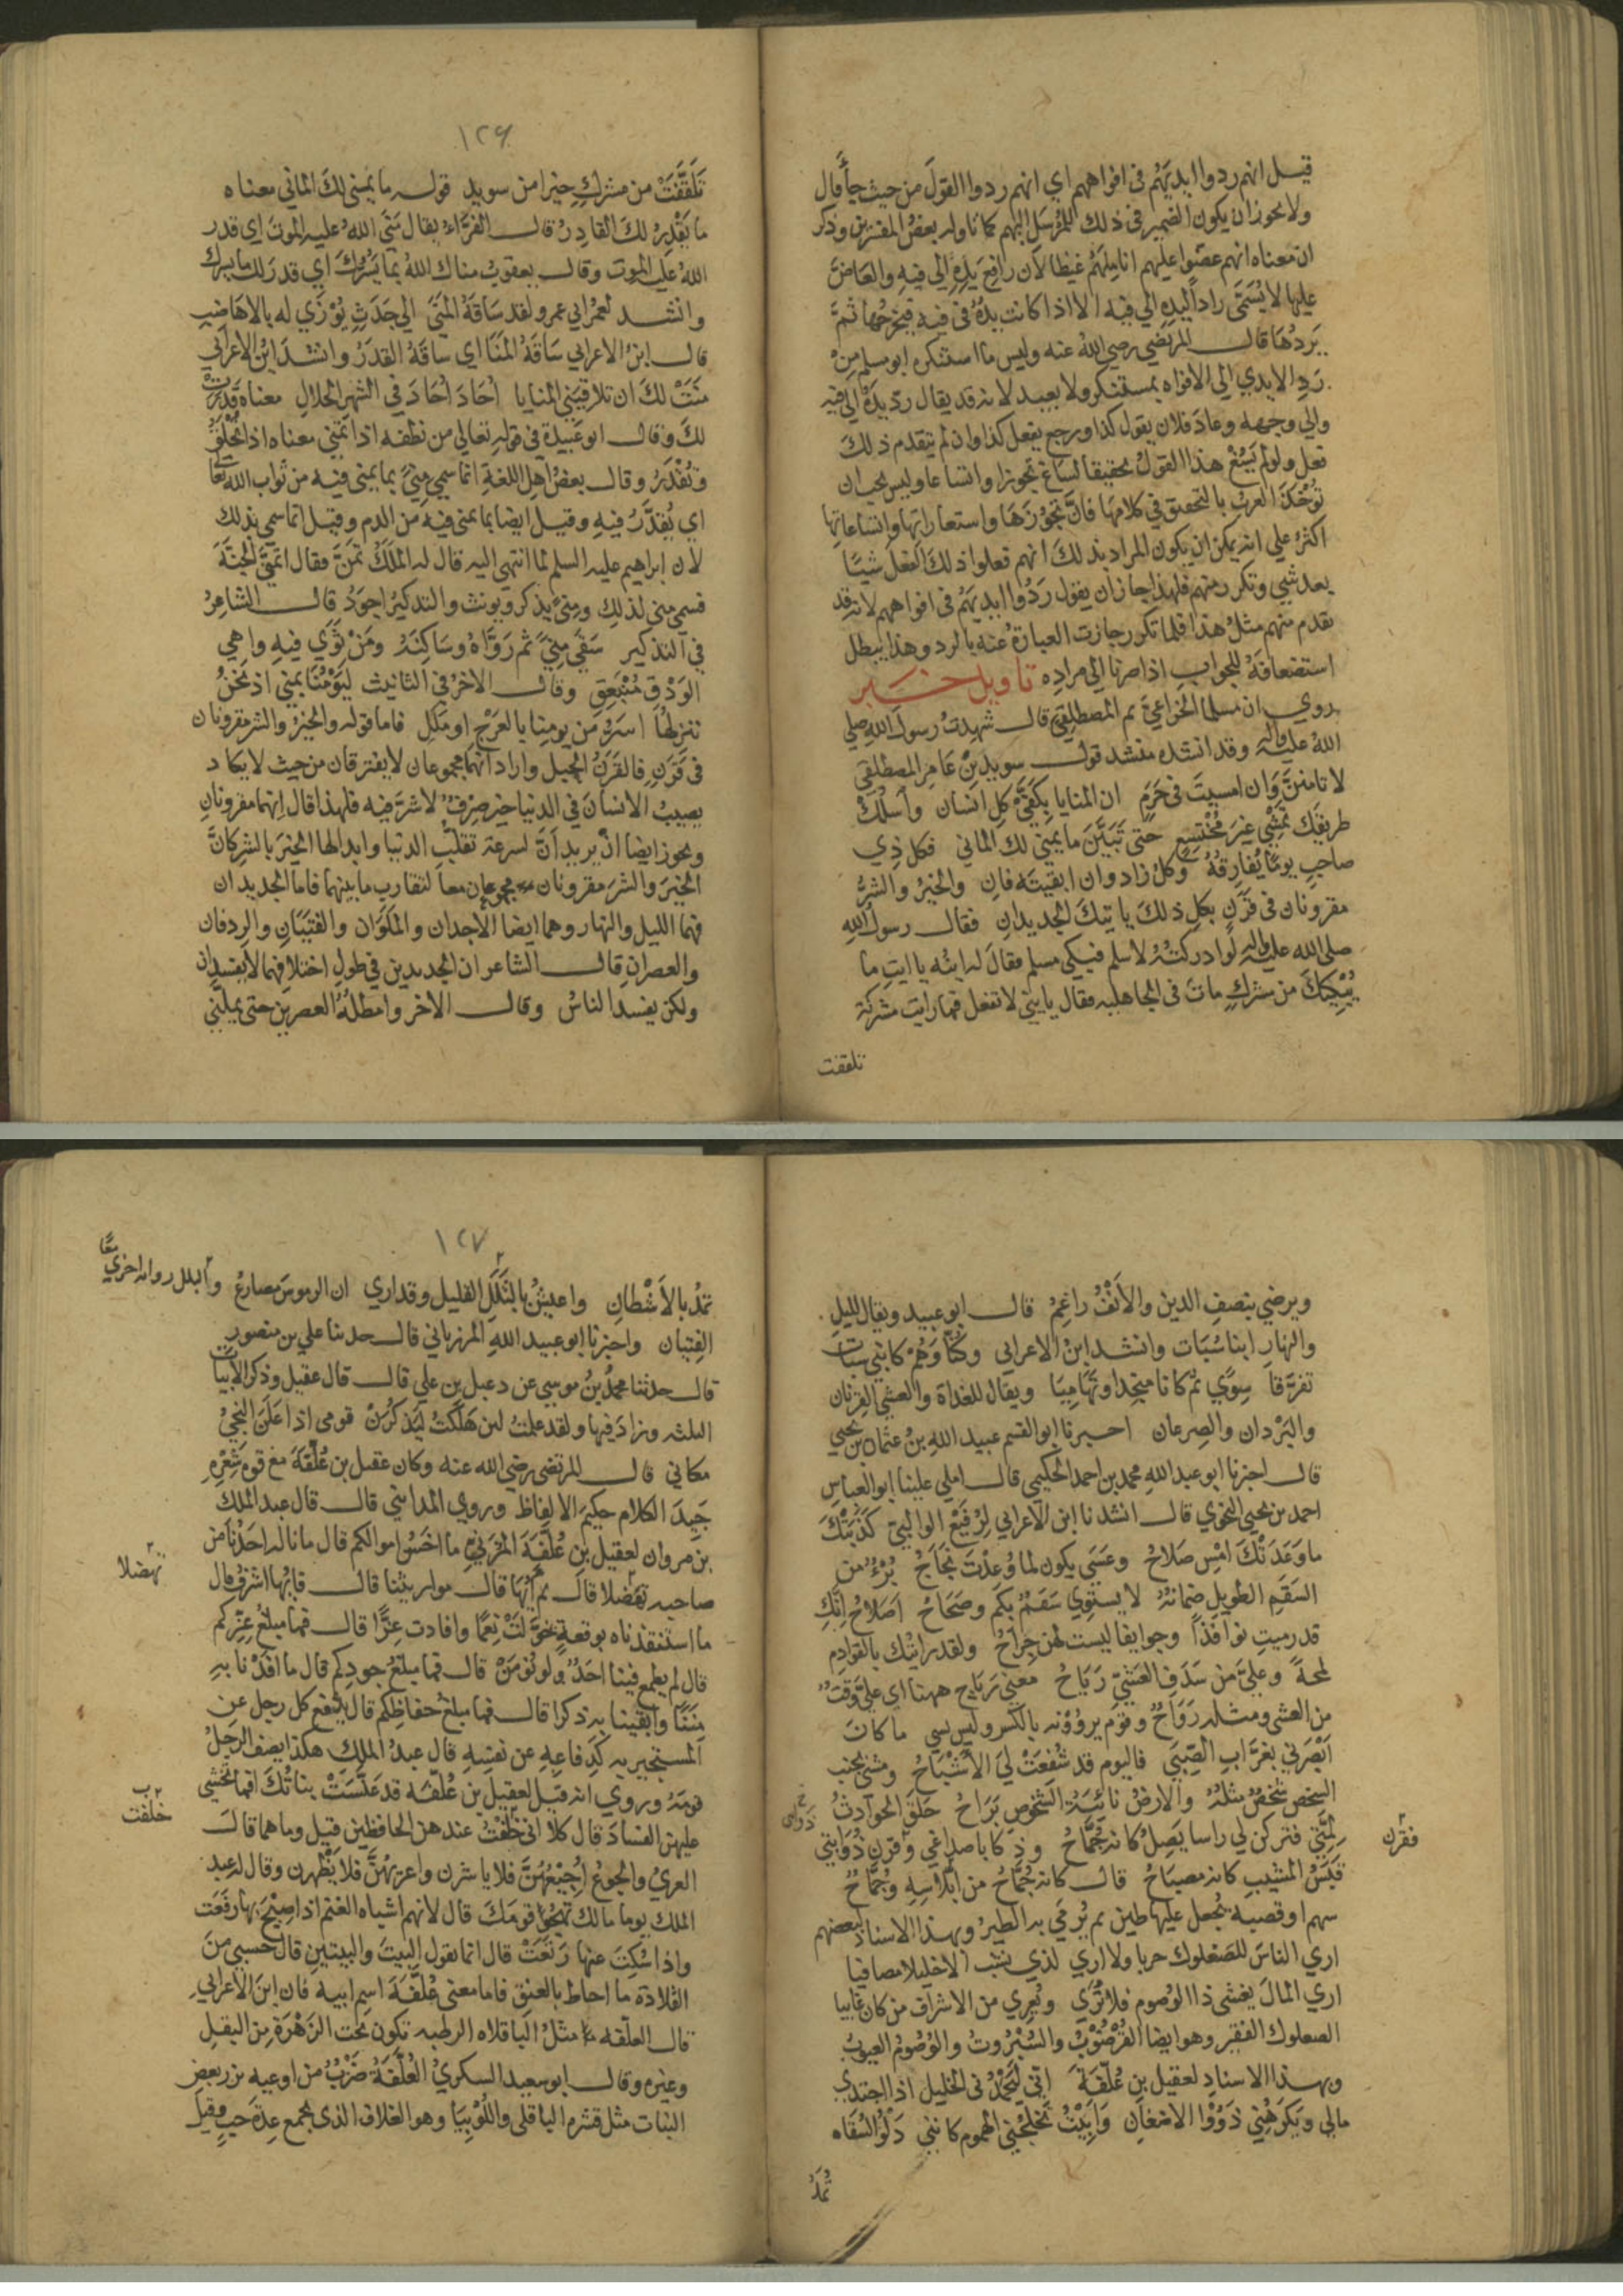 قيل انهم ردوا ايديهم فى افواههم اي انهم ردوا القول من حيث جأ فال
ولا يجوز ان يكون الضمير فى ذلك للمرسل اليهم كما تاوله بعض المفسرين وذكر
ان معناه انهم عضوا عليهم اناملهم غيظا لان رافع يده الي فيه والعاض
عليها لا يسمى رادا ليده الي فيه الا اذا كانت يده فى فيه فيخرجها ثم
يردها قال المرتضي رضي الله عنه وليس ما استنكره ابو مسلم من
رد الايدي الي الافواه بمستنكر ولا بعيد لانه قد يقال رد يده الي فيه
والي وجهه وعاد فلان يقول كذا ورجع يفعل كذا وان لم يتقدم ذلك
فعل ولو لم يسغ هذا القول تحقيقا لساغ تجوزا واتساعا وليس يجب ان
تؤخذ العرب بالتحقيق في كلامها فان تجوزها واستعاراتها واتساعاتها
اكثر علي انه يمكن ان يكون المراد بذلك انهم فعلوا ذلك الفعل شيئا
بعد شيي وتكرر منهم فلهذا جاز ان يقول ردوا ايديهم فى افواههم لانه قد
تقدم منهم مثل هذا فلما تكرر جازت العبارة عنه بالرد وهذا يبطل
استضعافه للجواب اذا صرنا الي مراده تاويل خبر
روي ان مسلما الخزاعي ثم المصطلقي قال شهدت رسول الله صلي
الله عليه واله وقد انشده منشد قول سويد بن عامر المصطلقي
لا تامنن وان امسيت فى حرم ان المنايا بكفي كل انسان واسلك
طريقك تمشي غير مختشع حتى تبين ما يمني لك الماني فكل ذي
صاحب يوما يفارقه وكل زاد وان ابقيته فان والخير والشر
مقرونان فى قرن بكل ذلك ياتيك الجديدان فقال رسول الله
صلى الله عليه واله لو ادركته لاسلم فبكى مسلم فقال له ابنه يا ابت ما
يبكيك من مشرك مات فى الجاهليه فقال يا بني لا تفعل فما رايت مشركة
تلقفت
١٢٦
تلقفت من مشرك خيرا من سويد قوله ما يمنى لك الماني معناه
ما يقدر لك القادر قال الفراء يقال منى الله عليه الموت اي قدر
الله عليه الموت وقال يعقوب مناك الله بما يسرك اي قدر لك ما يسرك
وانشد لعمر ابي عمرو لقد ساقه المنى الي جدث يوزي له بالاهاضيب
قال ابن الاعرابي ساقه المنا اي ساقه القدر وانشد ابن الاعرابي
منت لك ان تلاقيني المنايا احاد احاد في الشهر الحلال معناه قدرت
لك وقال ابو عبيدة في قوله تعالي من نطفه اذا تمني معناه اذا تخلق
وتقدر وقال بعض اهل اللغة انما سمي مني بما يمنى فيه من ثواب الله تعا
اي يقدر فيه وقيل ايضا بما يمنى فيه من الدم وقيل انما سمي بذلك
لان ابراهيم عليه السلم لما انتهى اليه قال له الملك تمن فقال اتمني الجنة
فسمي منى لذلك ومني يذكر ويونث والتذكير اجود قال الشاعر
في التذكير سقي مني ثم رواه وساكنه ومن ثوي فيه واهي
الودق منبعق وقال الاخر في التانيث ليومنا بمني اذ نحن
ننزلها اسر من يومنا بالعرج او ملل فاما قوله والخير والشر مقرونان
فى قرن فالقرن الحبل واراد انهما مجموعان لا يفترقان من حيث لا يكاد
يصيب الانسان في الدنيا خير صرف لا شر فيه فلهذا قال انهما مقرونان
ويجوز ايضا ان يريد ان لسرعة تقلب الدنيا وابدالها الخير بالشر كان
الخير والشر مقرونان مجموعان معا لتقارب ما بينهما فاما الجديدان
فهما الليل والنهار وهما ايضا الاجدان والملوان والفتيان والردفان
والعصران قال الشاعر ان الجديدين في طول اختلافهما لا يفسدان
ولكن يفسد الناس وقال الاخر وامطله العصرين حتى يملني
ويرضي بنصف الدين والانف راغم قال ابو عبيد ويقال لليل
والنهار ابنا سبات وانشد ابن الاعرابي وكنا وهم كابني سبات
تفرقا سوي ثم كانا منجدا وتهاميا ويقال للغداة والعشي القرنان
والبردان والصرعان اخبرنا ابو القسم عبيد الله بن عثمان بن يحيي
قال اخبرنا ابو عبد الله محمد بن احمد الحكيمي قال املي علينا ابو العباس
احمد بن يحيي النحوي قال انشدنا ابن الاعرابي لرفيع الوالبي كذبتك
ما وعدتك امس صلاح وعسي يكون لما وعدت نجاح برء من
السقم الطويل ضمانه لا يستوي سقم بكم وصحاح اصلاح انك
قد رميت نوافذا وجوايفا ليست لهن جراح ولقد رايتك بالقوادم
لمحة وعلي من سدف العشي رياح معني رياح ههنا اي علي وقت
من العشى ومثله رواح وقوم يروونه بالكسر وليس بسي ما كان
ابصرني بغراب الصبي فاليوم قد شفعت لي الاشباح ومشى بجنب
الشخص شخص مثله والارض نائية الشخوص براح حلق الحوادث
لمتي فتركن لي راسا يصل كانه جماح وذكا باصداغي وقرن ذوابتي
فقرن
قبس المشيب كانه مصباح قال كانه جماح من املاسه وجماح
سهم او قصبه يجعل عليها طين ثم يرمي به الطير وبهذا الاسناد لبعضهم
اري الناس للصعلوك حربا ولا اري لذي نشب الا خليلا مصافيا
اري المال يغشى ذا الوصوم فلا تري ويعري من الاشراف من كان غانيا
الصعلوك الفقير وهو ايضا القرضوب والسبروت والوصوم العيوب
وبهذا الاسناد لعقيل بن علفة اني ليحمدني الخليل اذا اجتدي
مالي ويكرهني ذوو الاضغان وابيت تخلجني الهموم كانني دلو السقاه
تمد
١٢٧
تمد بالاشطان واعيش بالبلل القليل وقد اري ان الرموس مصارع
وبالبلل رواية اخري معا
الفتيان واخبرنا ابو عبيد الله المرزباني قال حدثنا علي بن منصور
قال حدثنا محمد بن موسي عن دعبل بن علي قال قال عقيل وذكر الابيات
الثلثه وزاد فيها ولقد علمت لين هلكت ليذكرن قومى اذا علن النجي
مكاني قال المرتضى رضي الله عنه وكان عقيل بن علفة مع قوم شعره
جيد الكلام حكيم الالفاظ وروي المدايني قال قال عبد الملك
بن مروان لعقيل بن علفة المري ما اخس اموالكم قال ما ناله احدنا من
صاحبه تفضلا قال ثم ايها قال مواريثنا قال فايها اشرف قال
تهضلا
ما استنقذناه بوقعة خولت نعما وافادت عزا قال فما مبلغ عزكم
قال لم يطمع فينا احد ولو نومن قال فما مبلغ جودكم قال ما افدنا به
مننا وابقينا به ذكرا قال فما مبلغ حفاظكم قال يدفع كل رجل عن
المستجير به كدفاعه عن نفسه قال عبد الملك هكذا يصف الرجل
قومه وروي انه قيل لعقيل بن علفه قد عنست بناتك افما تخشى
عليهن الفساد قال كلا اني خلفت عندهن الحافظين قيل وما هما قال
خلفت
العري والجوع اجيعهن فلا ياشرن واعريهن فلا يظهرن وقال له عبد
الملك يوما مالك تهجو قومك قال لانهم اشباه الغنم اذا صيح بها رفعت
واذا سكت عنها رتعت قال انما تقول البيت والبيتين قال حسبي من
القلادة ما احاط بالعنق فاما معنى علفة اسم ابيه فان ابن الاعرابي
قال العلفه مثل الباقلاه الرطبه تكون تحت الزهرة من البقل
وغيره وقال ابو سعيد السكري العلفة ضرب من اوعيه بزر بعض
النبات مثل قشره الباقلى واللوبيا وهو الغلاف الذى يجمع عدة حب وقيل